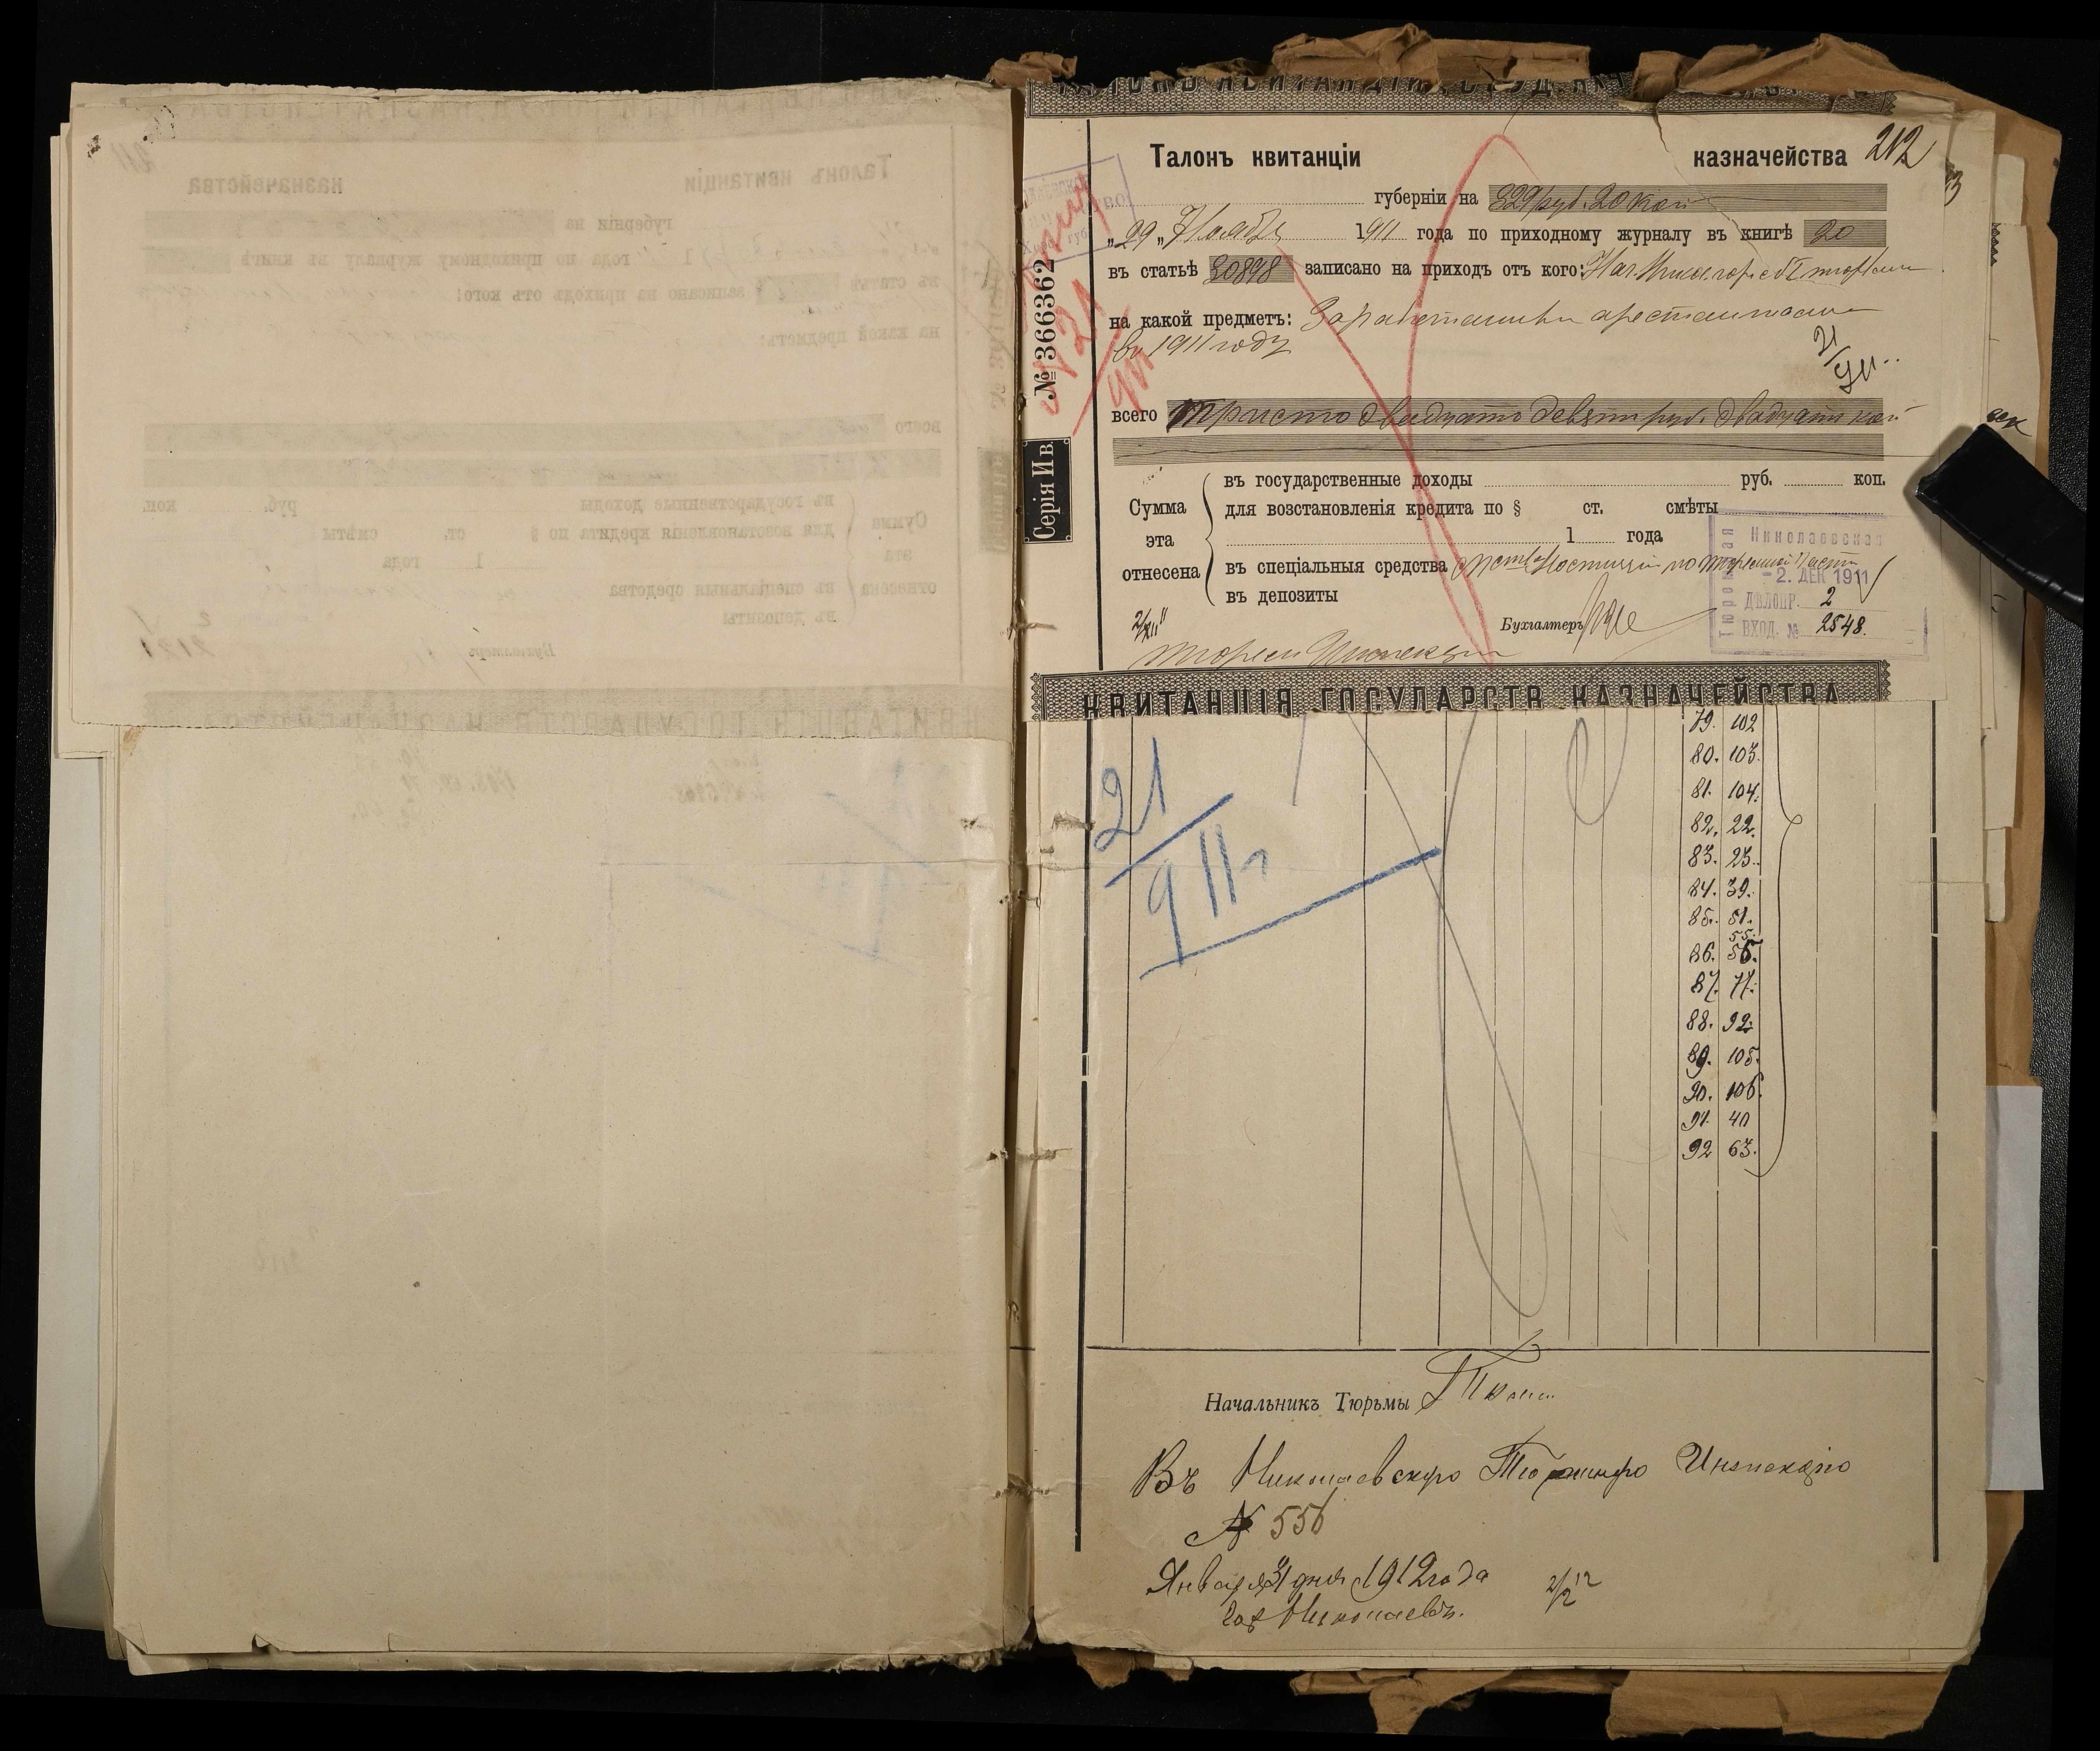 212
Талонъ квитанціи казначейства
губерніи на 329 руб. 20 коп
„29„ Ноября 1911 года по приходному журналу въ книгѣ 20
въ статьѣ 30898 записано на приходъ отъ кого:
на какой предметъ: арестантами
въ 1911 году
21/911
всего Триста двадцать девять руб. двадцать коп
№ 366362
Серія И в.
Сумма эта отнесена
въ государственные доходы руб. коп.
для возстановленія кредита по § ст. смѣты
1 года
въ спеціальныя средства по тюремной части
въ депозиты
Бухгалтеръ
Николаевская
Тюремная
-2. ДЕК 1911
ДѢЛОПР. 2
ВХОД. № 2548.
Тюремн Инспекц
КВИТАНЦІЯ ГОСУДАРСТВ. КАЗНАЧЕЙСТВА
21/911 г.
79. 102
80. 103.
81. 104.
82. 22.
83. 23.
84. 39.
85. 51.
55.
86. 56.
87. 77.
88. 92.
89. 105.
90. 106.
91. 40
92 63.
Начальникъ Тюрьмы
Въ Николаевскую Тюремную Инспекцію
№ 556
Января 31 дня 1912 года
гор Николаевъ.